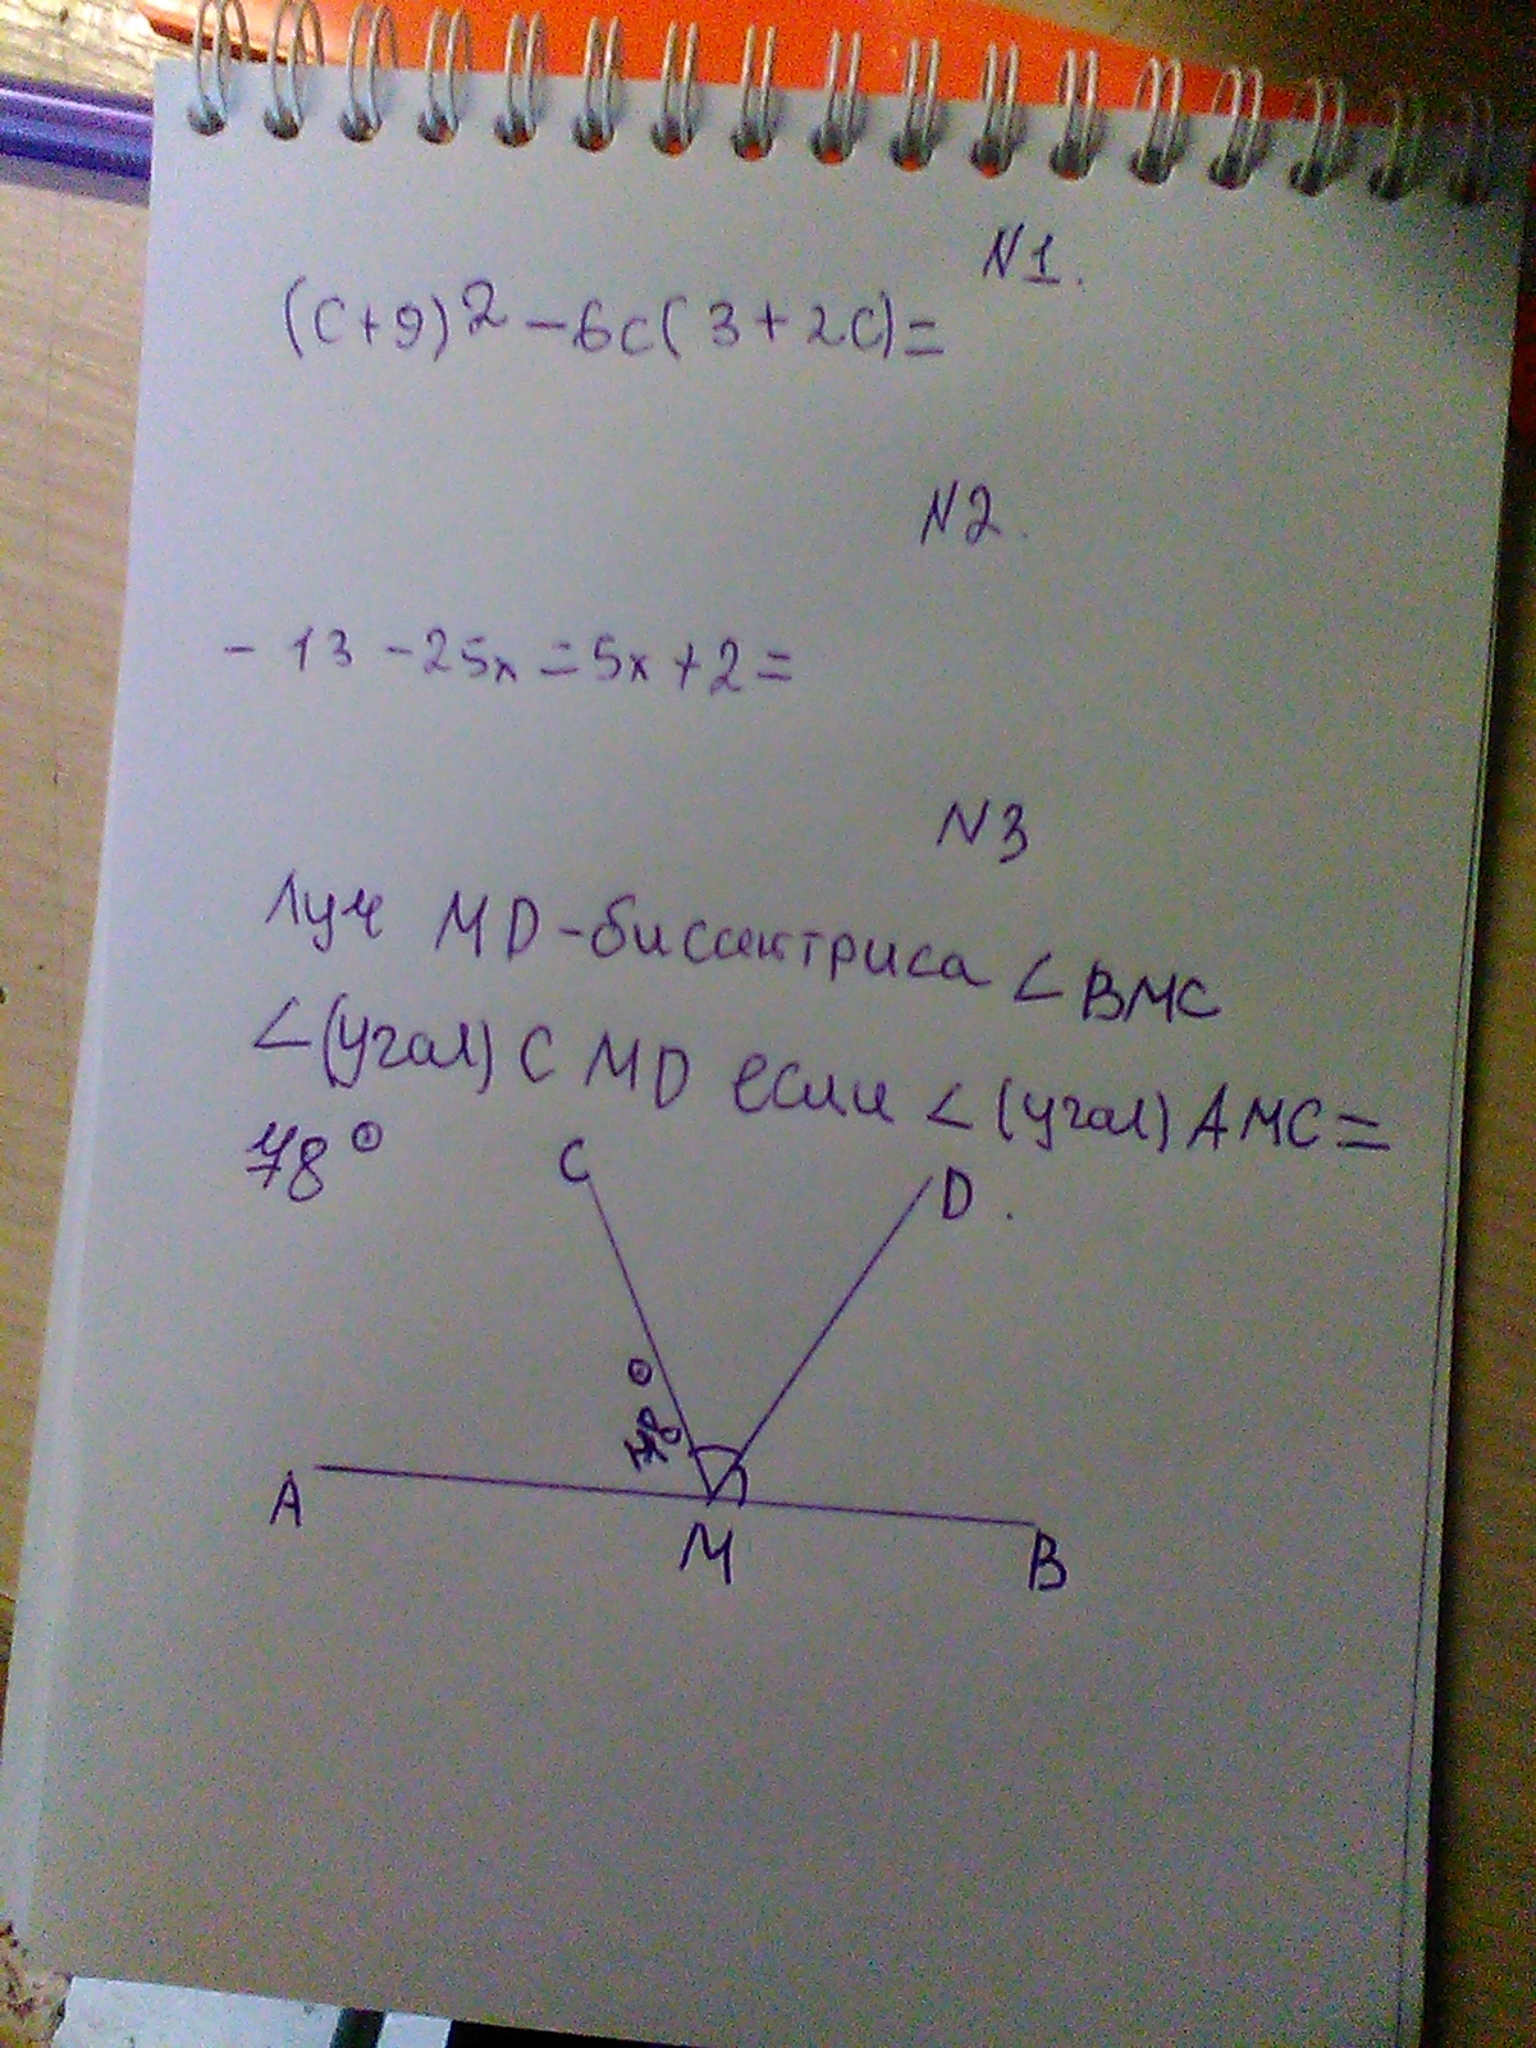 N1.
(c+9)² - 6c(3+2c)=
N2.
- 13 - 25x = 5x + 2 =
N3
Луч MD - биссектриса ∠BMC
∠(угал) CMD если ∠(угал) AMC =
78°
C
D.
78°
A
M
B